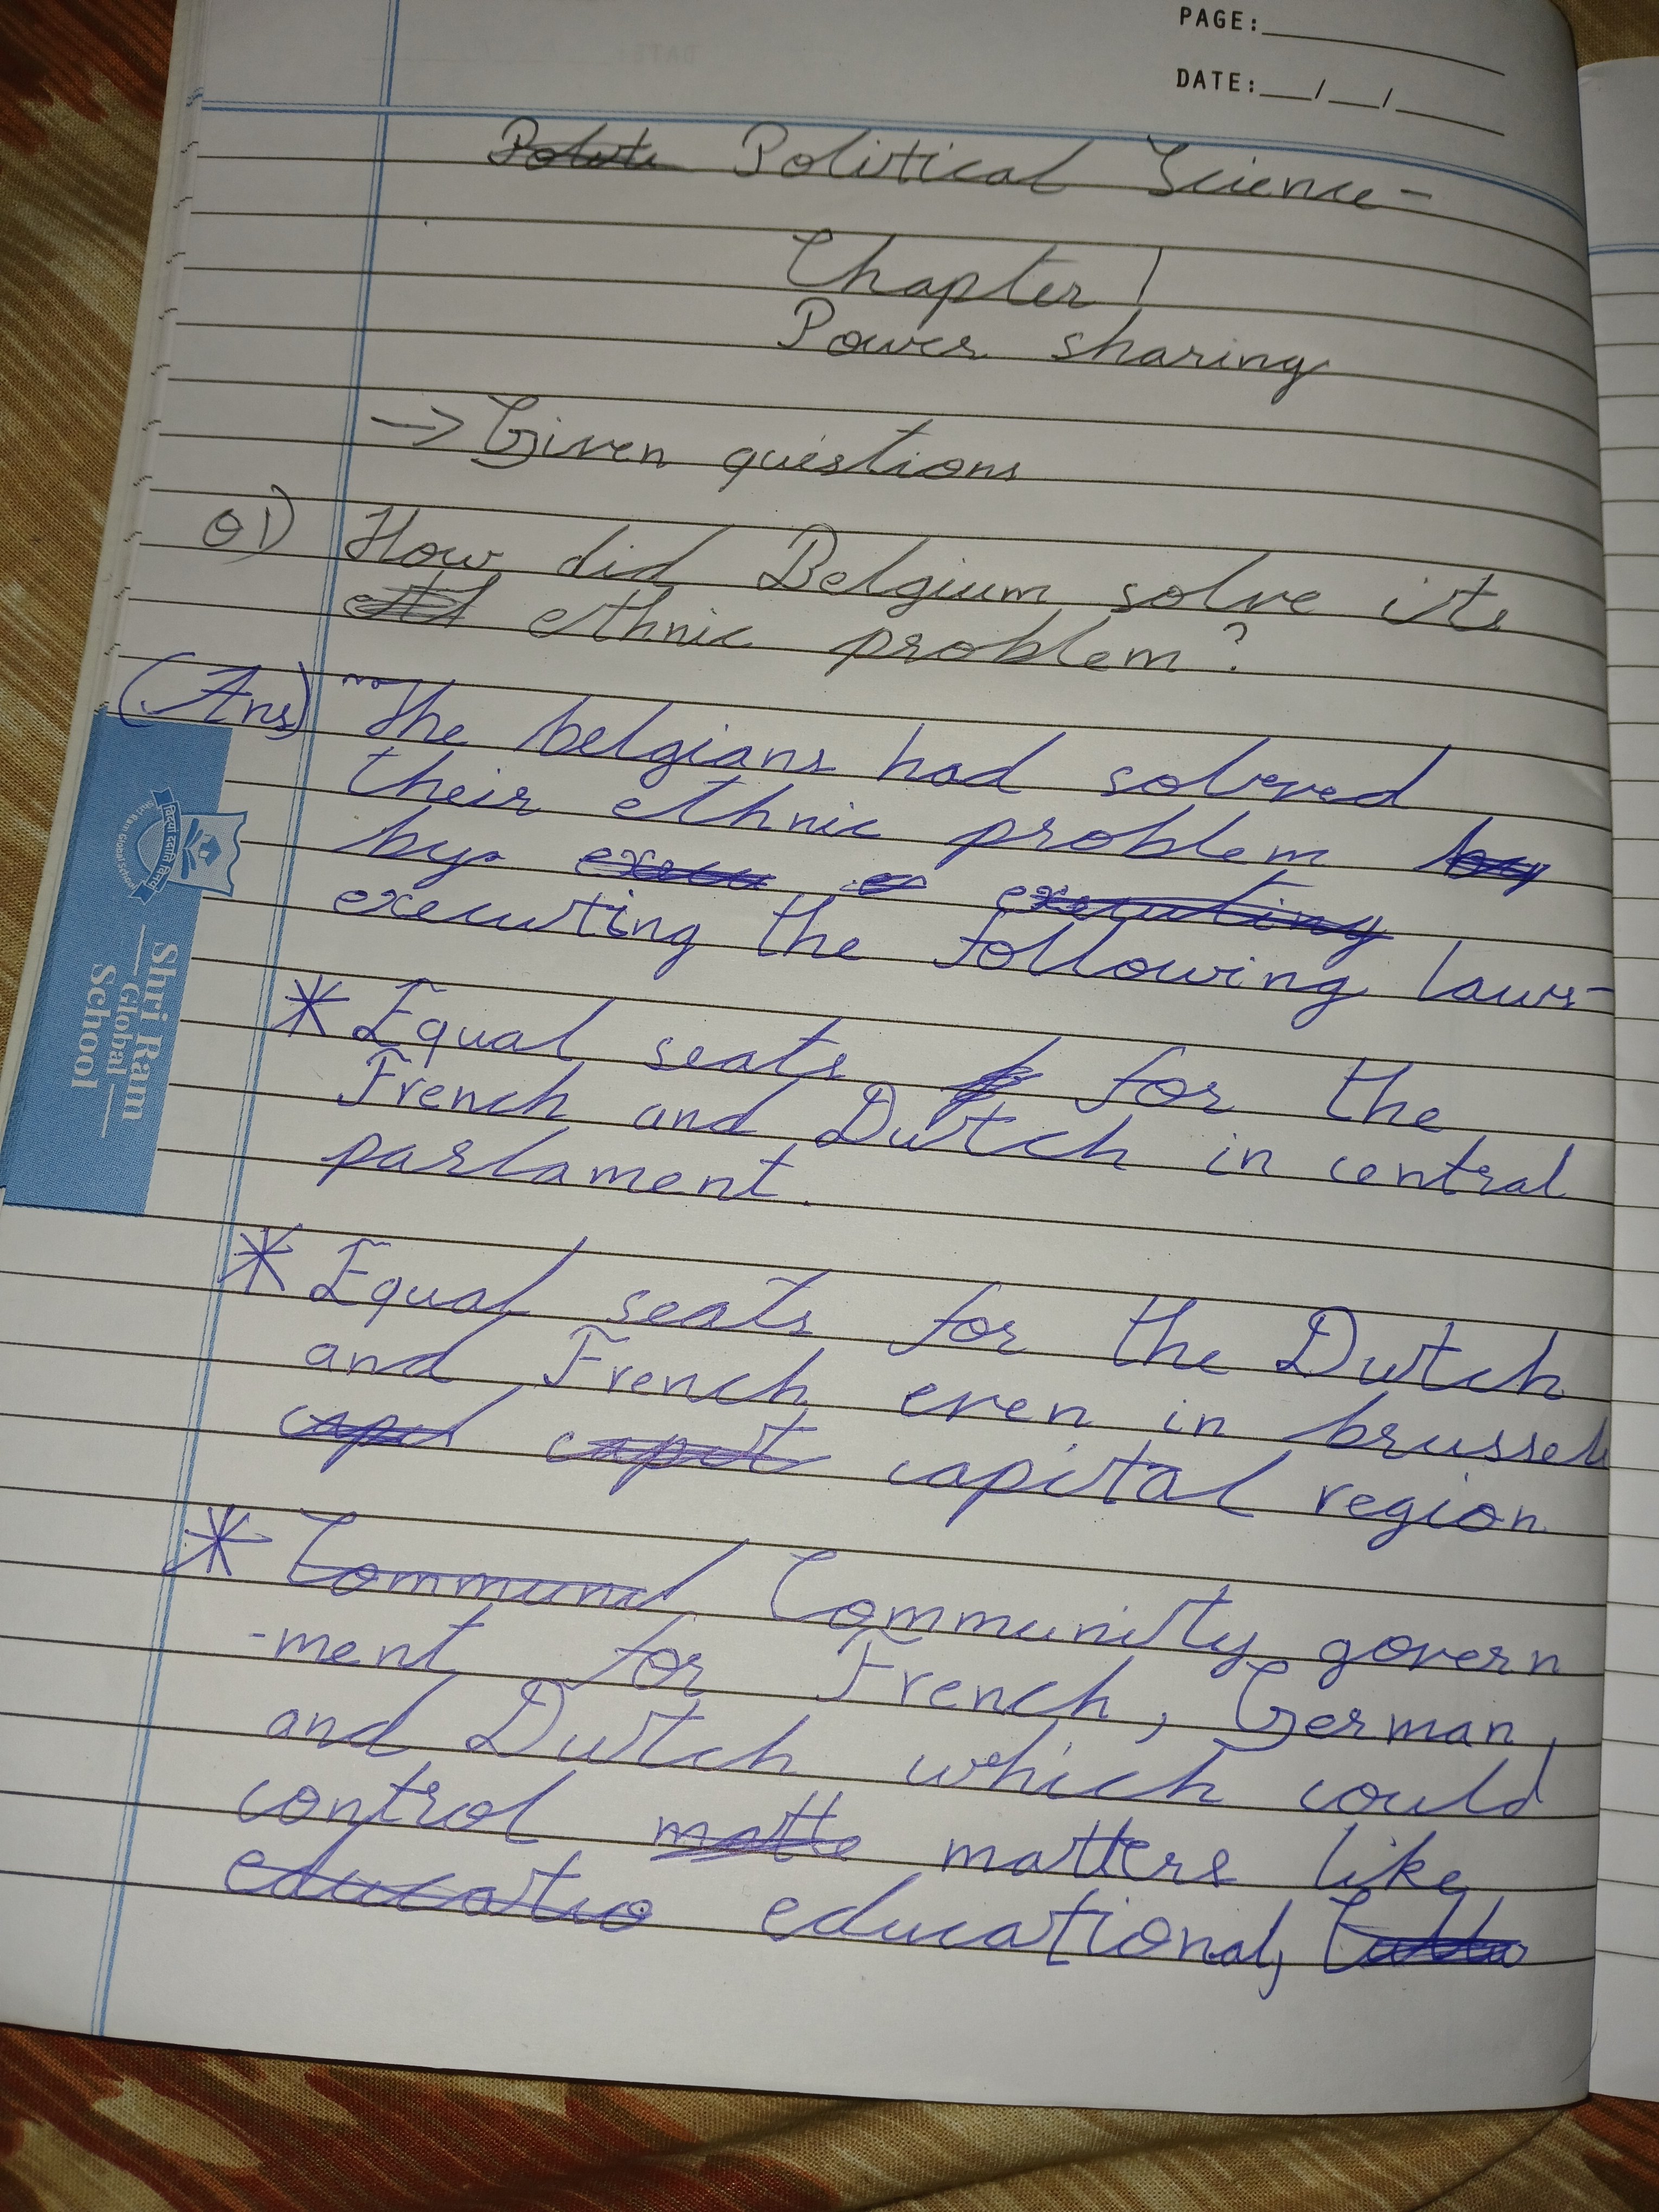 PAGE:
DATE: / /
Political Science-
Chapter 1
Power sharing
→ Given questions
Q1) How did Belgium solve its
ethnic problem?
(Ans) The belgians had solved
their ethnic problem
by executing
executing the following laws-
* Equal seats for the
French and Dutch in central
parlament.
* Equal seats for the Dutch
and French even in brussels
capital region
* Community govern
-ment for French, German,
and Dutch which could
control matters like
educational,
Shri Ram
Global
School